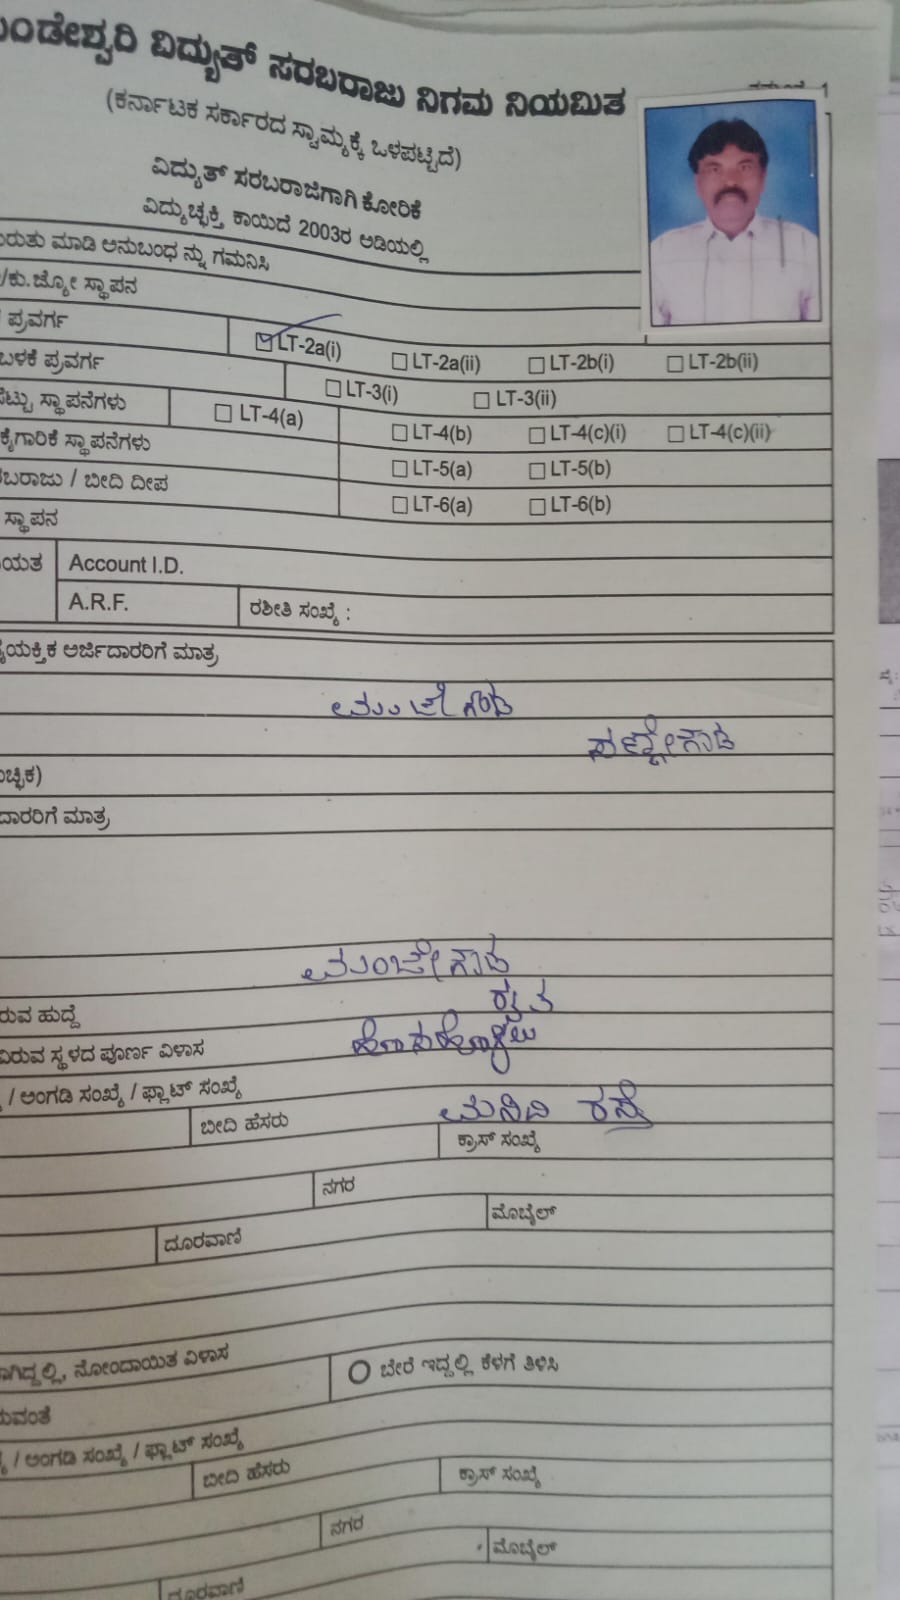 ಂಡೇಶ್ವರಿ ವಿದ್ಯುತ್ ಸರಬರಾಜು ನಿಗಮ ನಿಯಮಿತ
(ಕರ್ನಾಟಕ ಸರ್ಕಾರದ ಸ್ವಾಮ್ಯಕ್ಕೆ ಒಳಪಟ್ಟಿದೆ)
ವಿದ್ಯುತ್ ಸರಬರಾಜಿಗಾಗಿ ಕೋರಿಕೆ
ವಿದ್ಯುಚ್ಛಕ್ತಿ ಕಾಯಿದೆ 2003ರ ಅಡಿಯಲ್ಲಿ
ರುತು ಮಾಡಿ ಅನುಬಂಧ ನ್ನು ಗಮನಿಸಿ
/ಕು.ಜ್ಯೋ ಸ್ಥಾಪನ
ಪ್ರವರ್ಗ LT-2a(i) LT-2a(ii) LT-2b(i) LT-2b(ii)
ಬಳಕೆ ಪ್ರವರ್ಗ LT-3(i) LT-3(ii)
ಸೆಟ್ಟು ಸ್ಥಾಪನೆಗಳು LT-4(a) LT-4(b) LT-4(c)(i) LT-4(c)(ii)
ಕೈಗಾರಿಕೆ ಸ್ಥಾಪನೆಗಳು LT-5(a) LT-5(b)
ರಬರಾಜು / ಬೀದಿ ದೀಪ LT-6(a) LT-6(b)
ಸ್ಥಾಪನ
ಯತ Account I.D.
A.R.F. ರಶೀತಿ ಸಂಖ್ಯೆ :
ೈಯಕ್ತಿಕ ಅರ್ಜಿದಾರರಿಗೆ ಮಾತ್ರ
ಮಂಜೇಗೌಡ
ಸಣ್ಣೇಗೌಡ
ಚ್ಛಿಕ)
ದಾರರಿಗೆ ಮಾತ್ರ
ಮಂಜೇಗೌಡ
ರುವ ಹುದ್ದೆ ರೈತ
ವಿರುವ ಸ್ಥಳದ ಪೂರ್ಣ ವಿಳಾಸ
/ ಅಂಗಡಿ ಸಂಖ್ಯೆ / ಫ್ಲಾಟ್ ಸಂಖ್ಯೆ
ಬೀದಿ ಹೆಸರು ರಸ್ತೆ
ಕ್ರಾಸ್ ಸಂಖ್ಯೆ
ನಗರ
ದೂರವಾಣಿ ಮೊಬೈಲ್
ಾಗಿದ್ದಲ್ಲಿ, ನೋಂದಾಯಿತ ವಿಳಾಸ ಬೇರೆ ಇದ್ದಲ್ಲಿ ಕೆಳಗೆ ತಿಳಿಸಿ
ರುವಂತೆ
/ ಅಂಗಡಿ ಸಂಖ್ಯೆ / ಫ್ಲಾಟ್ ಸಂಖ್ಯೆ
ಬೀದಿ ಹೆಸರು ಕ್ರಾಸ್ ಸಂಖ್ಯೆ
ನಗರ
ದೂರವಾಣಿ ಮೊಬೈಲ್